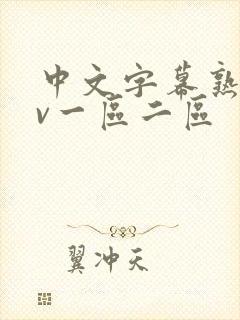 中文字幕熟
v一區二區
翼冲天